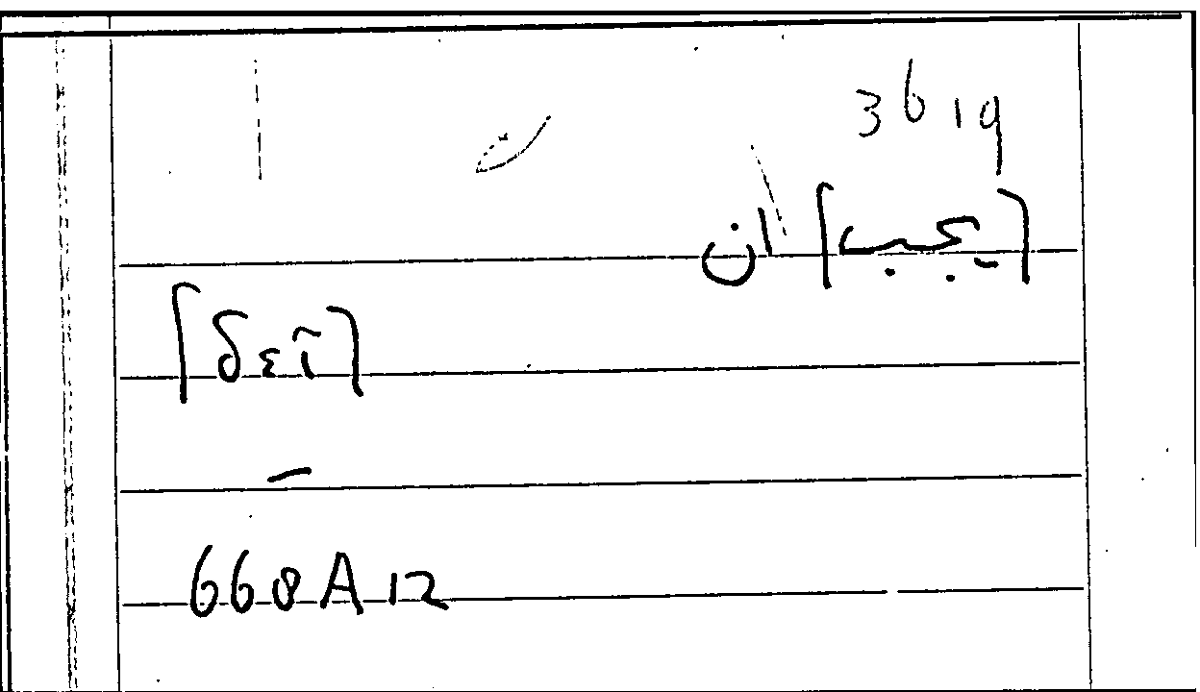 36 19
[يجب] ان
[δεῖ]
–
668A12